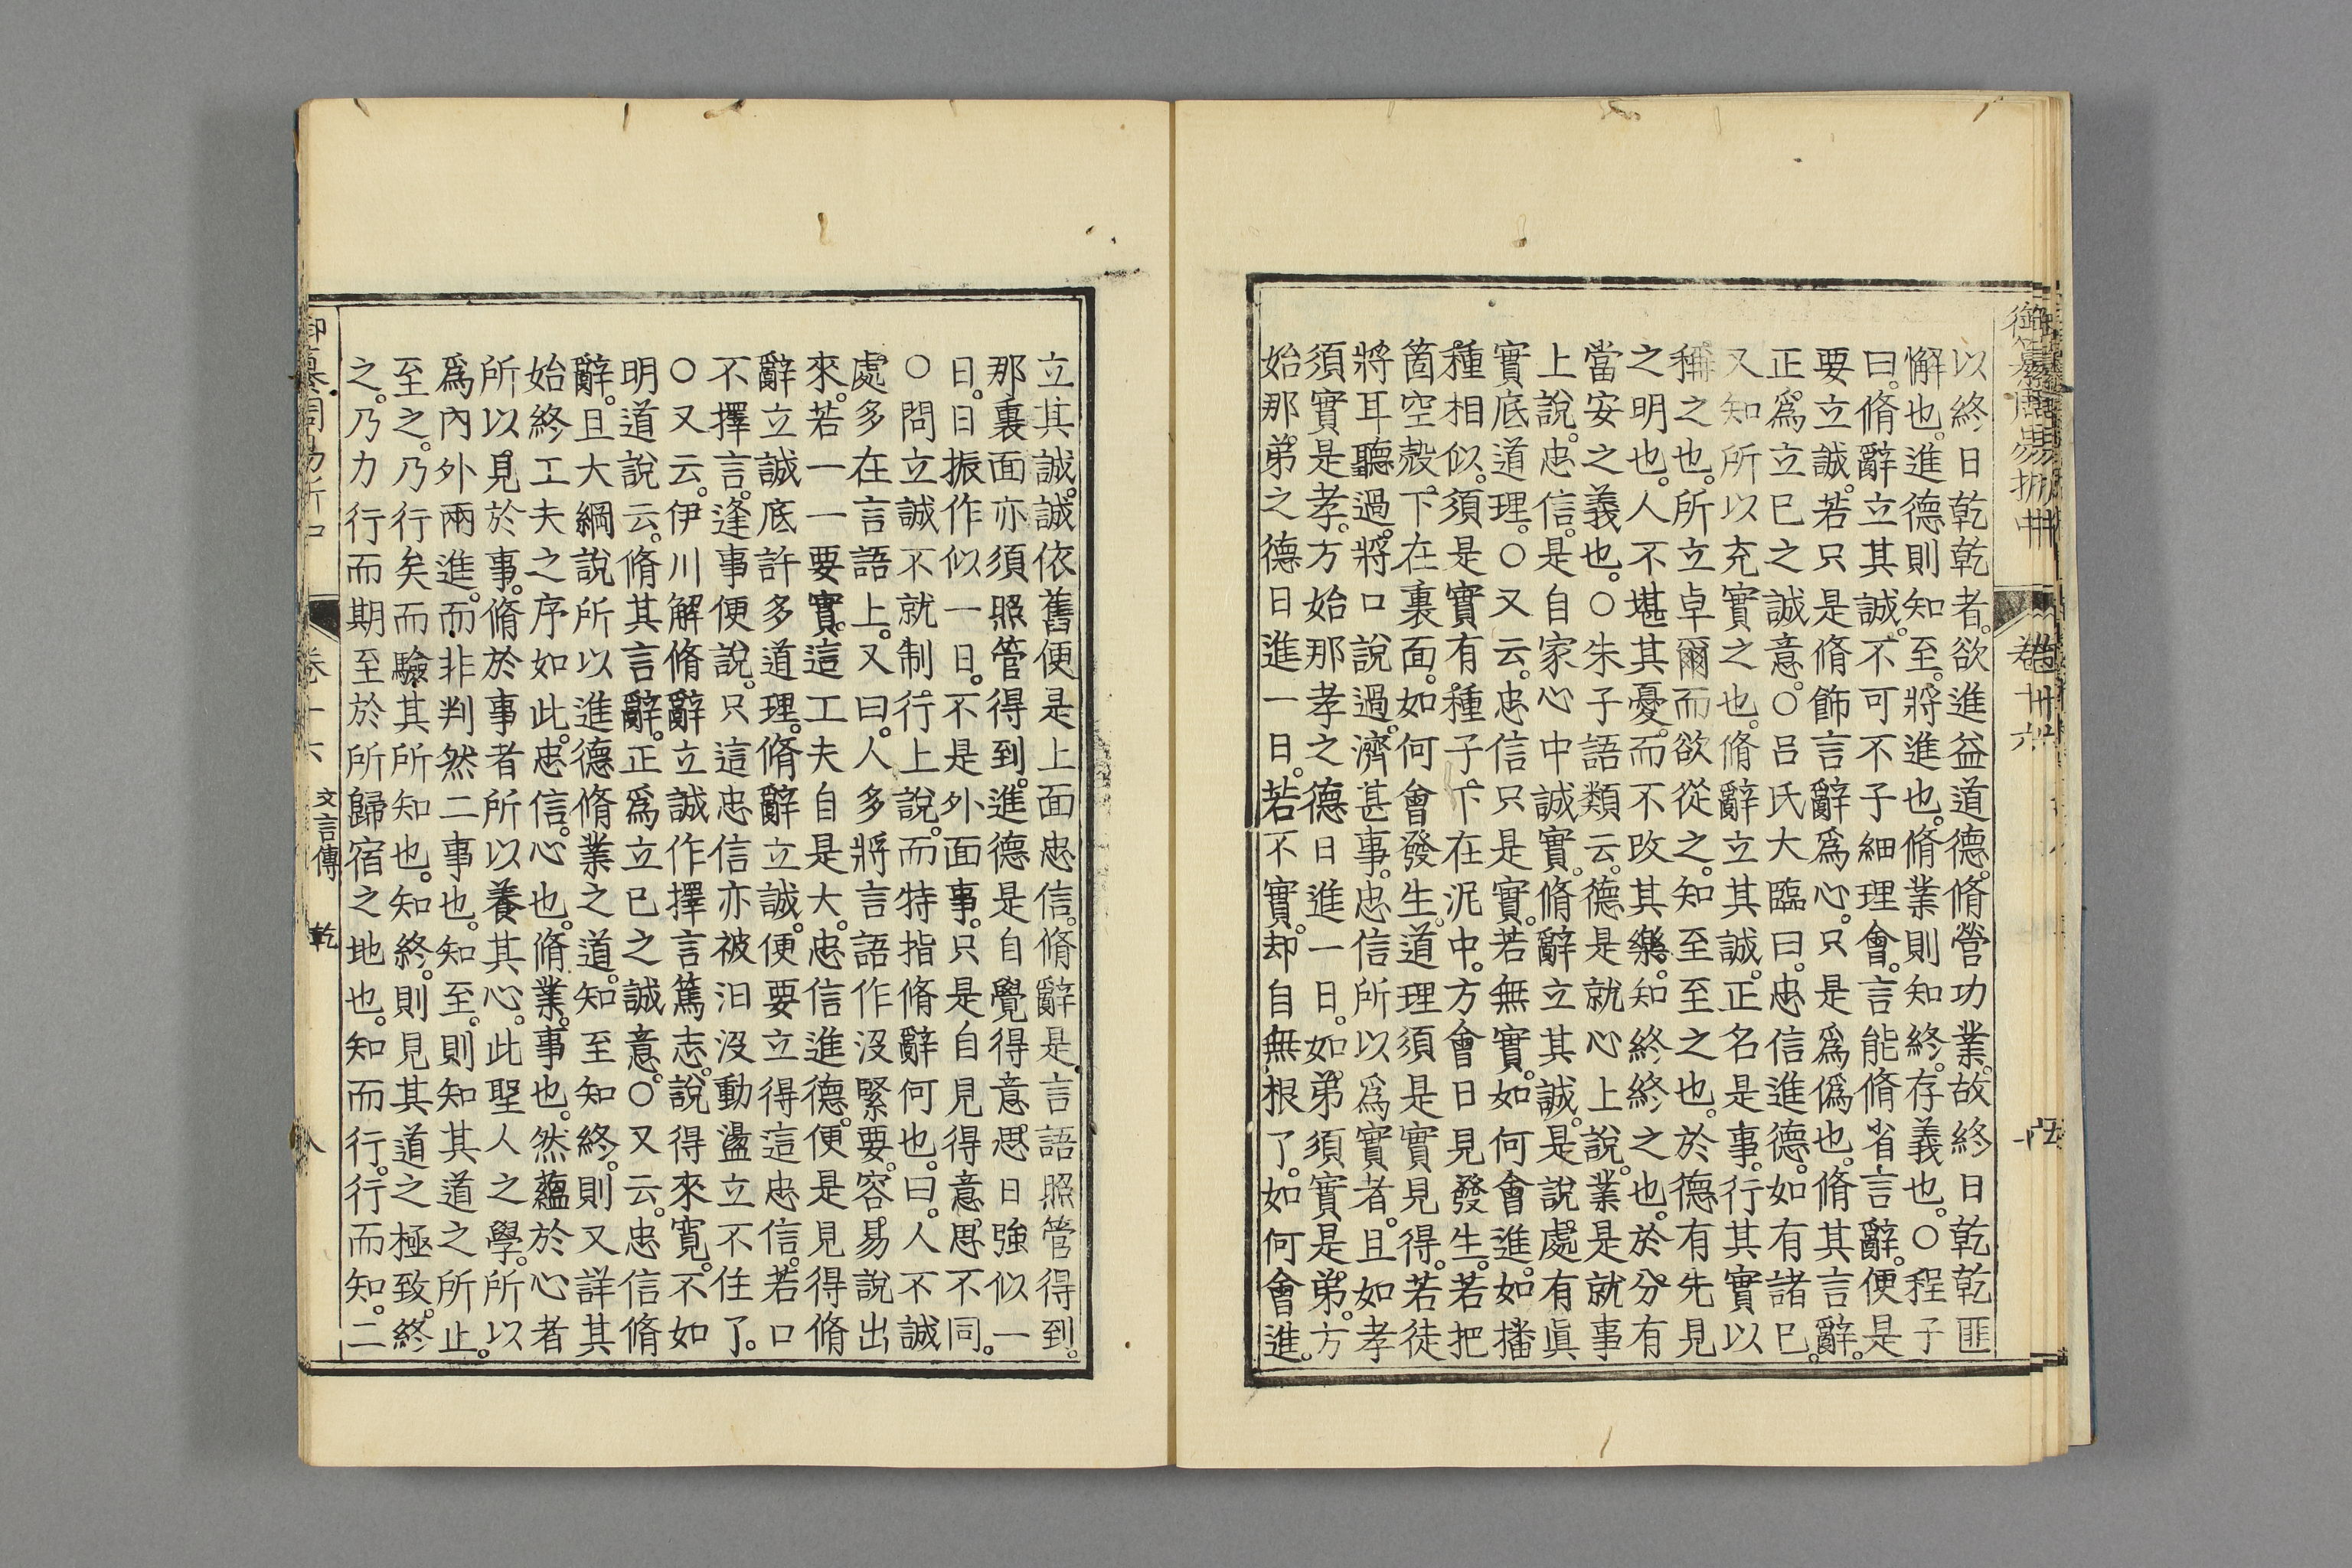 以終日乾乾者。欲進益道德。脩營功業。故終日乾乾匪
懈也。進德則知至。將進也。脩業則知終。存義也。○程子
曰。脩辭立其誠。不可不子細理會。言能脩省言辭。便是
要立誠。若只是脩飾言辭爲心。只是爲僞也。脩其言辭。
正爲立已之誠意。○呂氏大臨曰。忠信進德。如有諸已。
又知所以充實之也。脩辭立其誠。正名是事。行其實以
稱之也。所立卓爾而欲從之。知至至之也。於德有先見
之明也。人不堪其憂。而不改其樂。知終終之也。於分有
當安之義也。○朱子語類云。德是就心上說。業是就事
上說。忠信。是自家心中誠實。脩辭立其誠。是說處有眞
實底道理。○又云。忠信只是實。若無實。如何會進。如播
種相似。須是實有種子。下在泥中。方會日見發生。若把
箇空殼。下在裏面。如何會發生。道理須是實見得。若徒
將耳聽過。將口說過。濟甚事。忠信所以爲實者。且如孝
須實是孝。方始那孝之德日進一日。如弟。須實是弟。方
始那弟之德日進一日。若不實。却自無根了。如何會進。
立其誠。誠依舊便是上面忠信。脩辭是言語照管得到。
那裏面亦須照管得到。進德是自覺得意思日強似一
日。日振作似一日。不是外面事。只是自見得意思不同。
○問立誠不就制行上說。而特指脩辭何也。曰。人不誠
處多在言語上。又曰。人多將言語作沒緊要。容易說出
來。若一一要實。這工夫自是大。忠信進德。便是見得脩
辭立誠底許多道理。脩辭立誠。便要立得這忠信。若口
不擇言。逢事便說。只這忠信亦被汩沒動盪立不住了。
○又云。伊川解脩辭立誠作擇言篤志。說得來寬。不如
明道說云。脩其言辭。正爲立已之誠意。○又云。忠信脩
辭。且大綱說所以進德脩業之道。知至知終。則又詳其
始終工夫之序如此。忠信。心也。脩業。事也。然蘊於心者
所以見於事。脩於事者所以養其心。此聖人之學。所以
爲內外兩進。而非判然二事也。知至。則知其道之所止。
至之。乃行矣而驗其所知也。知終。則見其道之極致。終
之。乃力行而期至於所歸宿之地也。知而行。行而知。二
卷十六 文言傳 乾 八